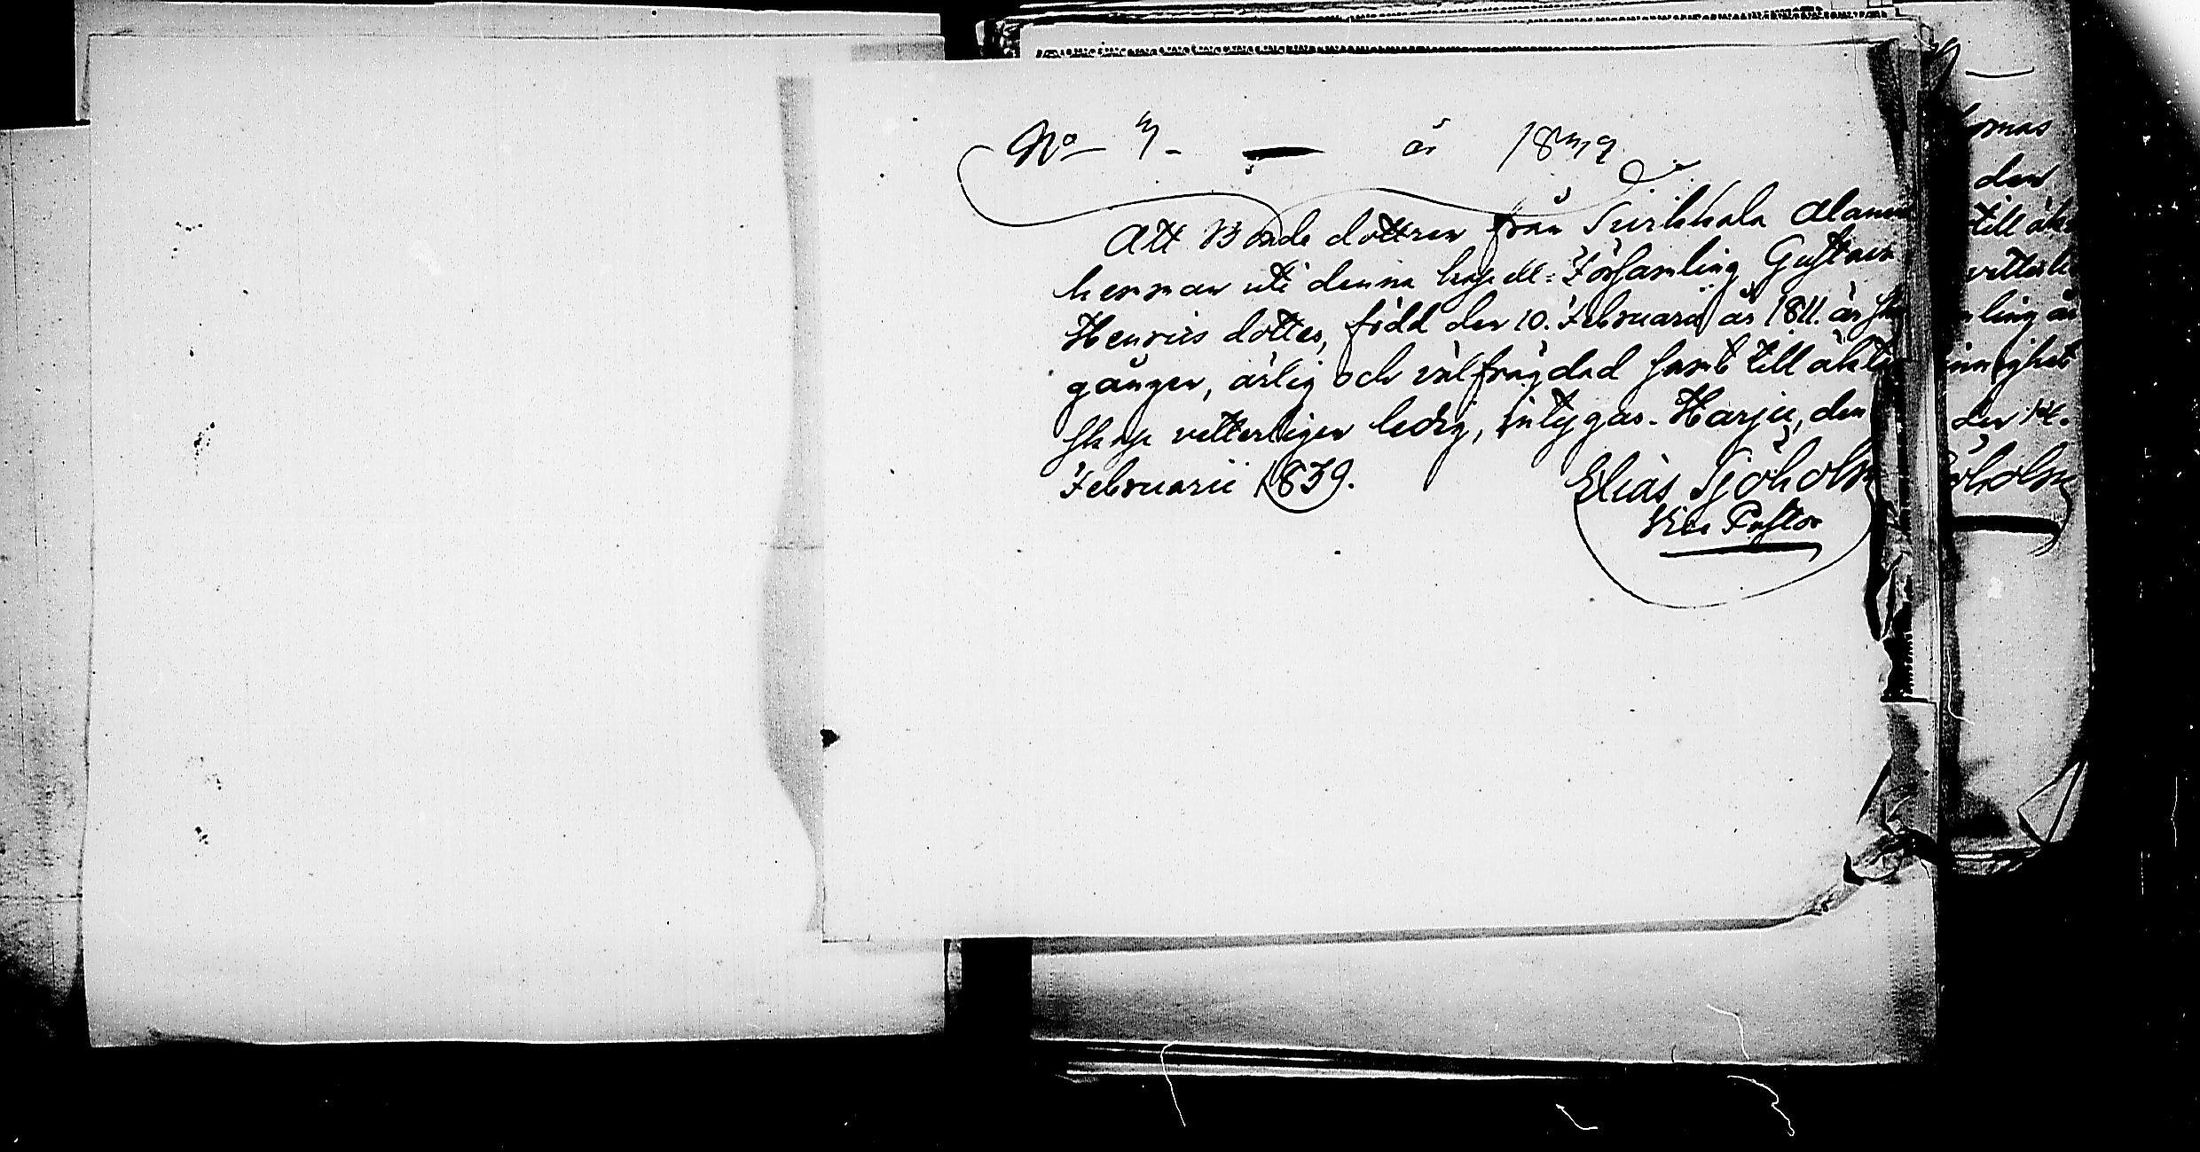 No 3. — år 1839
Att Bonde dottren från Turkkala Alanen
hemman uti denna kapell-Församling Gustava
Henrics dotter, född den 10. Februarii år 1811. är
gången, ärlig och välfrägdad samt till äkten
skap vetterligen ledig, intygas. Harju, den
Februarii 1839. Elias Sjöholm
Vice Pastor
den
till äkt
vetterli
ling är
den 14.
öholm